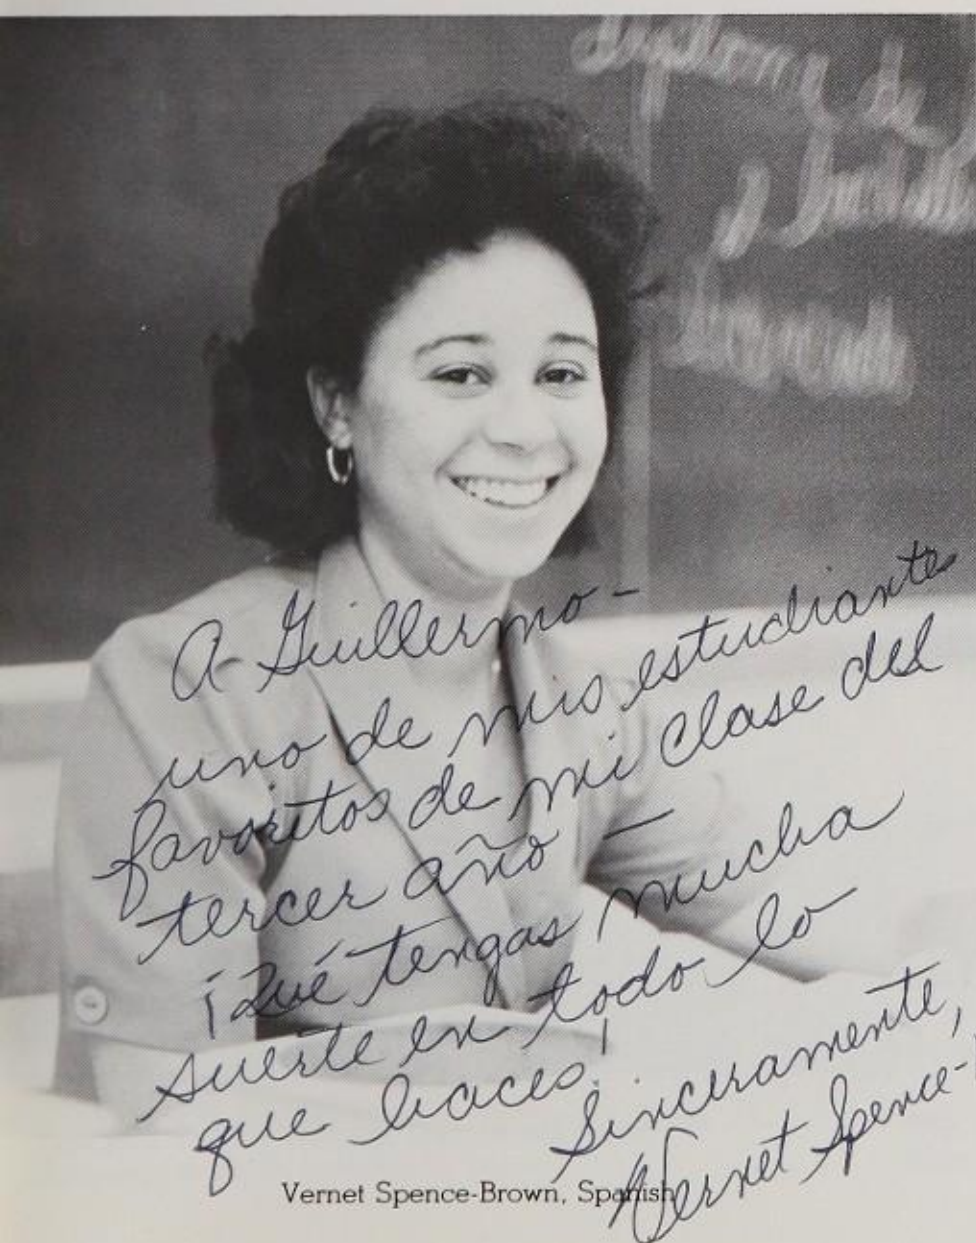 de
y
A Guillermo -
uno de mis estudiantes
favoritos de mi clase del
tercer año —
¡Qué tengas mucha
suerte en todo lo
que haces!
Sinceramente,
Vernet Spence-
Vernet Spence-Brown, Spanish